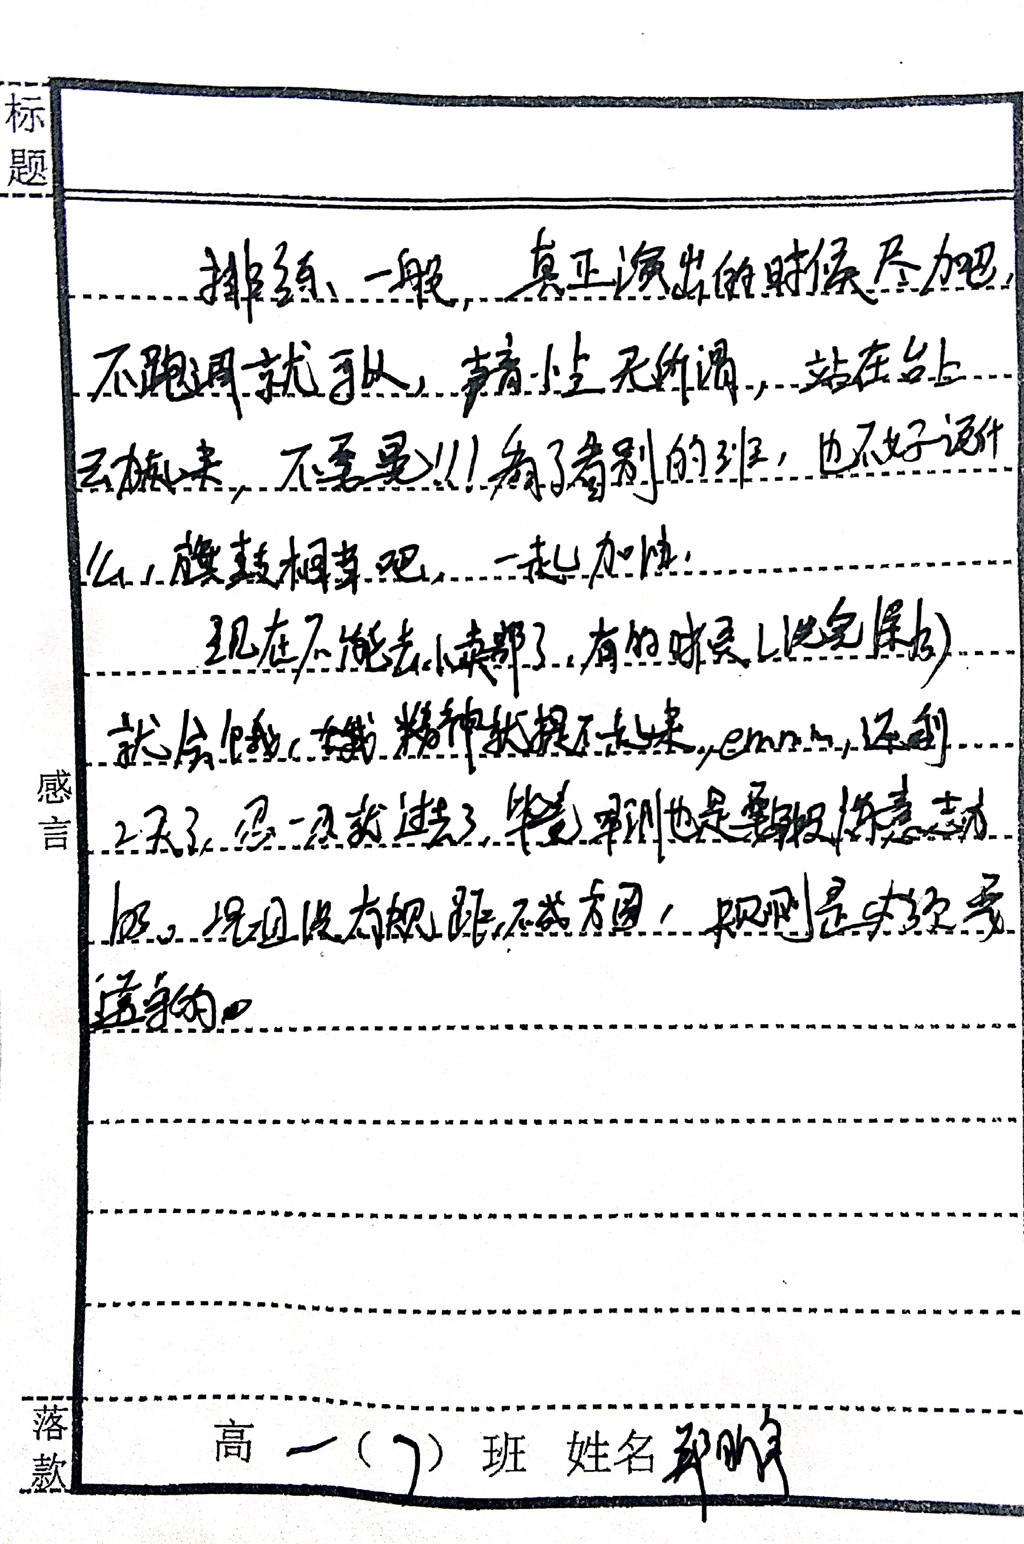 标题
排练一般，真正演出的时候尽力吧，
不跑调就可以，声音小些无所谓，站在台上
动起来，不要晃!!!看了看别的班，也不好说什
么，旗鼓相当吧，一起加油.
现在不能去小卖部了，有的时候(洗完澡后)
就会饿，在我精神就提不起来，emmm，还剩
2天了，忍一忍就过去了，毕竟军训也是要锻炼意志力
的。况且没有规距不成方圆，规则是必须要
遵守的。
感言
落款
高一(7)班 姓名郑